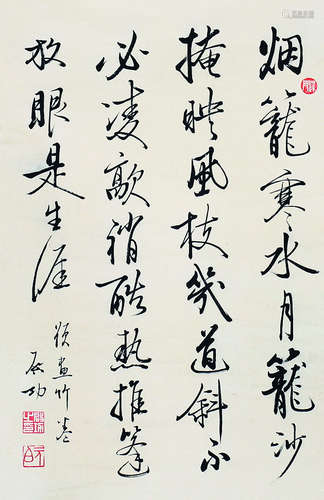 烟籠寒水月籠沙
掩映風枝幾道斜不
必凌歊消酷熱推篷
放眼是生涯
題畫竹卷
啟功